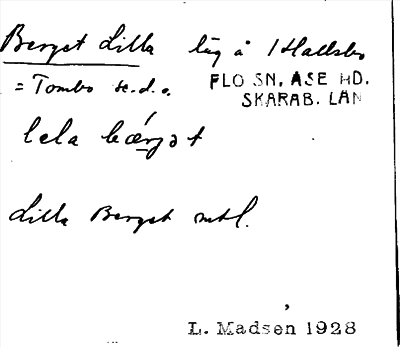 Berget Lilla låg å Hallsbo
= Tombo se.d.o. FLO SN, ÅSE HD.
SKARAB. LÄN
lela bærjət
Lilla Berget mtl.
L. Madsén 1928